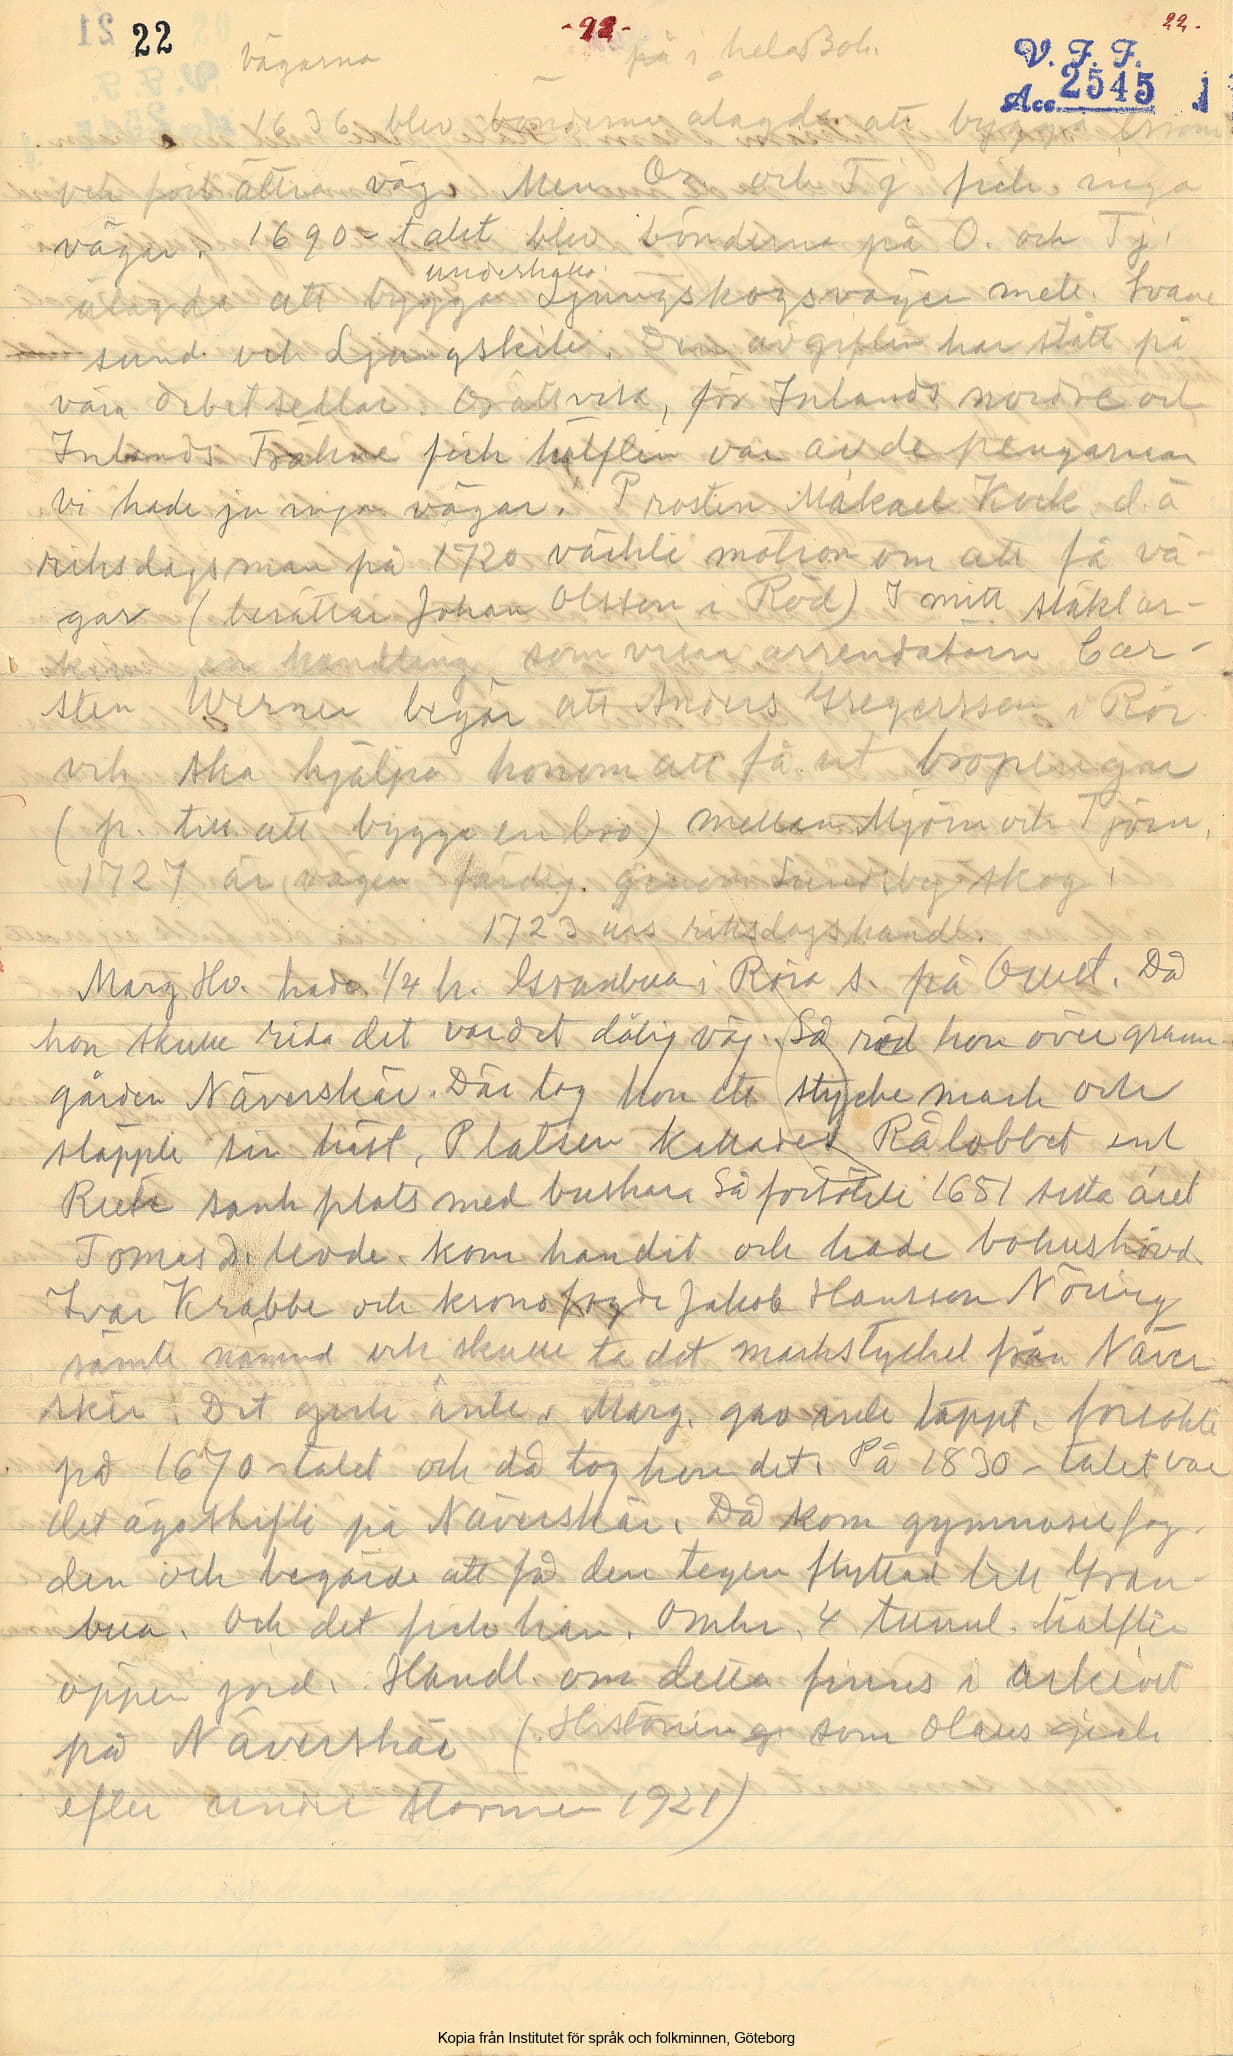 22 -22- 22.
V. F. F.
Acc. 2545
Vägarna på i hela Boh.
1636 blev bönderna ålagda att bygga
och förbättra väg. Men Or. och Tj fick inga
vägar. 1690-talet blev bönderna på O. och Tj.
underhålla
ålagda att bygga Ljungskogsvägen mell. Svane
sund och Ljungskile. Den avgiften har stått på
våra debetsedlar. Orättvisa, för Inlands nordre och
Inlands Fräkne fick hälften var av de pengarna
Vi hade ju inga vägar. Prosten Mikael Kock d.ä
riksdagsman på 1720 väckte motion om att få vä-
gar (berättar Johan Olsson i Röd) I mitt släktar-
kiv en handling som visar arrendatorn Car-
sten Werner begär att Anders Gregersson i Rör
och ska hjälpa honom att få ut bropengar
(p. till att bygga en bro) mellan Mjörn och Tjörn.
1727 är vägen färdig genom Sundsby skog
1723 riksdagshandl.
Marg Hv. hade 1/4 h. Granbua i Röra s. på Orust. Då
hon skulle rida dit var det dålig väg. Så red hon över grann
gården Näverskär. Där tog hon ett stycke mark och
släppte sin häst. Platsen kallades Rålobbet
sank plats med buskara Så försökte 1651 sista året
Tomas D. levde. kom han dit och hade bohushövd.
Ivar Krabbe och kronofogde Jakob Hansson Nöring
samt nämnd och skulle ta det markstycket från Näver
skär. Det gick inte. Marg. gav inte tappt. försökte
på 1670-talet och då tog hon det. På 1830-talet var
det ägoskifte på Näverskär. Då kom gymnasiefog
den och begärde att få den tegen flyttad till Gran-
bua. Och det fick han. Omkr. 4 tunnl. hälften
öppen jord. Handl. om detta finns i arkivet
på Näverskär (Historien som Olaus gick
efter under stormen 1921)
Kopia från Institutet för språk och folkminnen, Göteborg